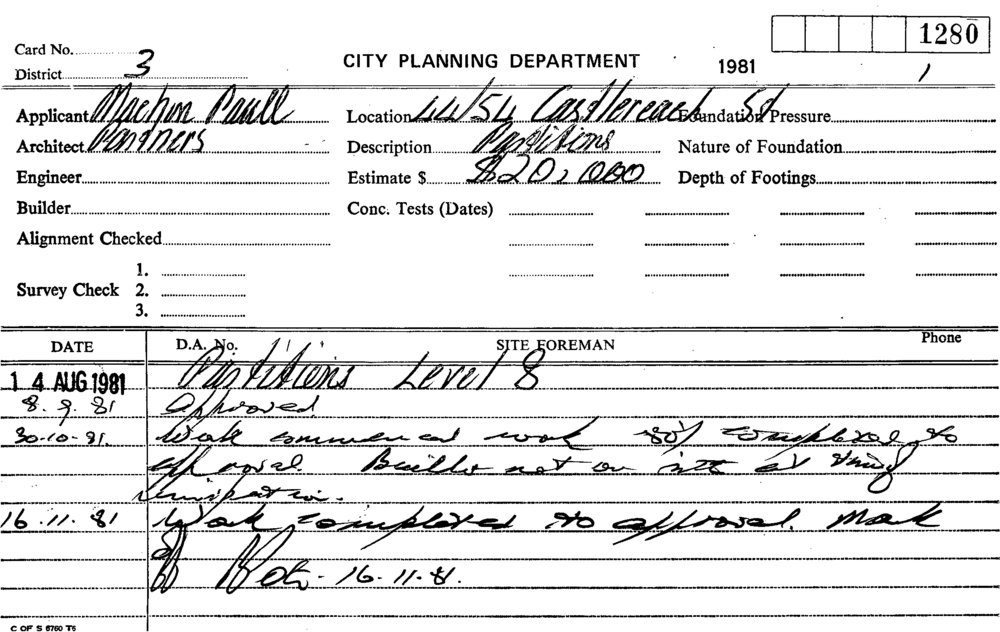 1280
Card No.
District 3
CITY PLANNING DEPARTMENT
1981
1
Applicant Machin Paull
Location 44/54 Castlereagh St
Foundation Pressure
Architect Partners
Description Partitions
Nature of Foundation
Engineer
Estimate $ $20,000
Depth of Footings
Builder
Conc. Tests (Dates)
Alignment Checked
1.
Survey Check 2.
3.
DATE
D.A. No.
SITE FOREMAN
Phone
14 AUG 1981 Partitions Level 8
8.9.81 Approved
30-10-81. Work commenced work 80% completed to
approval. Builder not on site at time of
inspection.
16.11.81 Work completed to approval. Mark
off 16.11.81.
C OF S 6760 T6